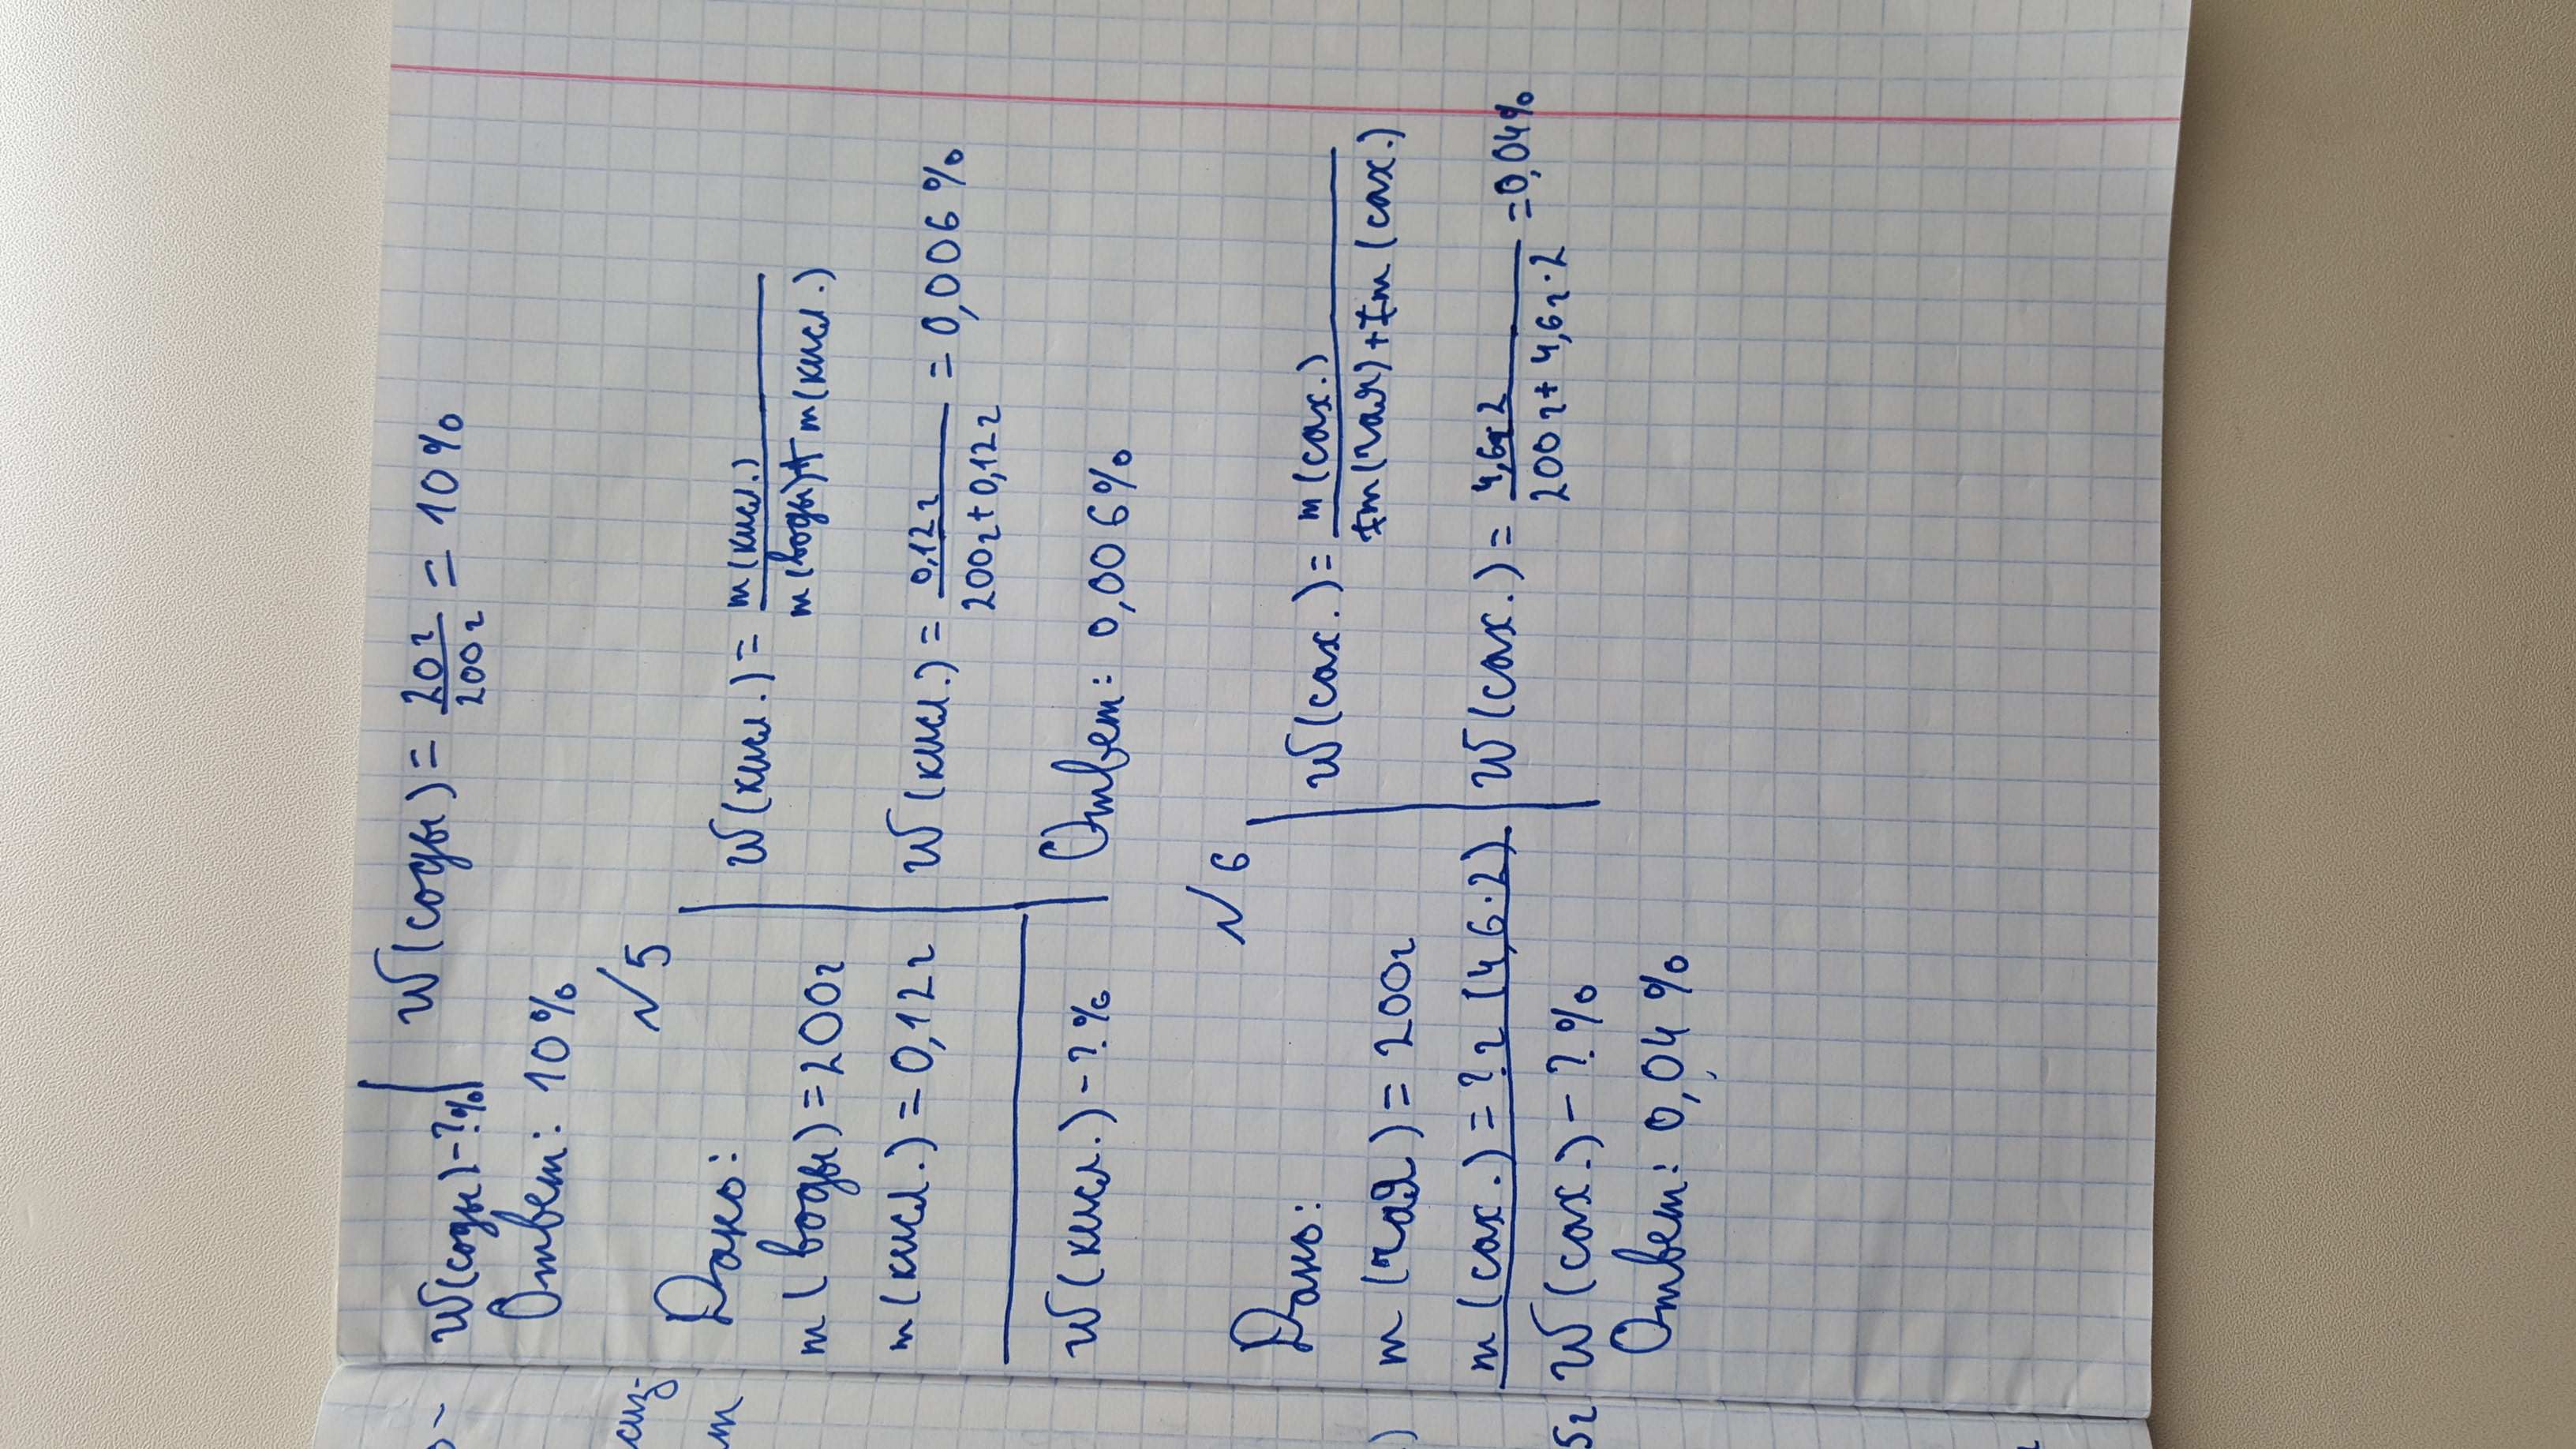 W(соды)-?%
W(соды) = 20г/200г = 10%
Ответ: 10%
№5
Дано:
m(воды) = 200г
m(кисл.) = 0,12г
W(кисл.) -?%
W(кисл.) = m(кисл.)/m(воды)+m(кисл.)
W(кисл.) = 0,12г/200г+0,12г = 0,006%
Ответ: 0,006%
№6
Дано:
m(чая) = 200г
m(сах.) = ?г (4,6·2)
W(сах.) -?%
Ответ: 0,04%
W(сах.) = m(сах.)/m(чая)+m(сах.)
W(сах.) = 4,6·2/200г+4,6г·2 = 0,04%
сиз-
т
)
5г